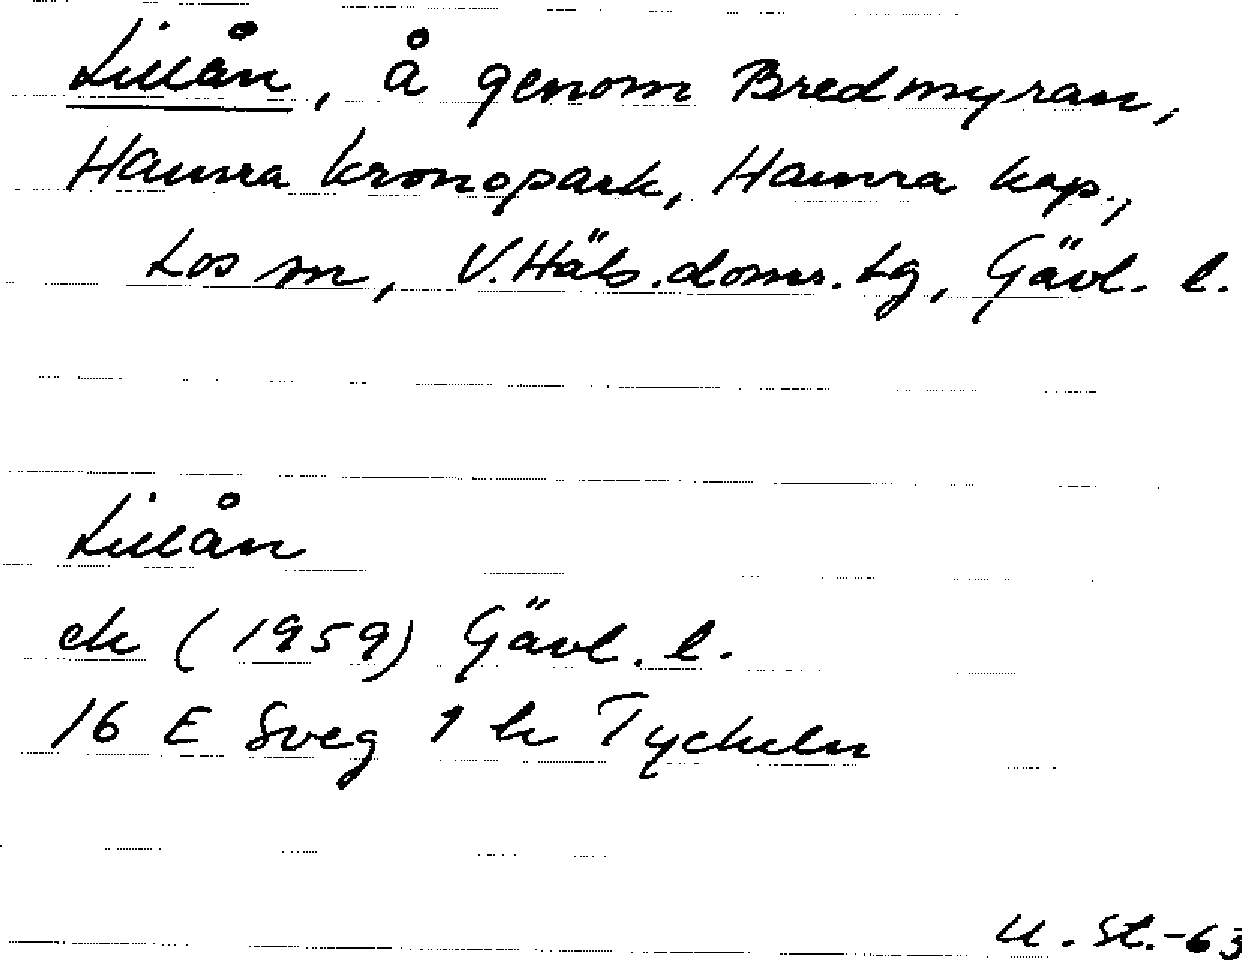 Lillån, å genom Bredmyran,
Hamra kronopark, Hamra kap.,
Los sn, V. Häls. doms. tg, Gävl. l.
Lillån
ek (1959) Gävl. l.
16 E Sveg 1 h Tyckeln
U. St.-63